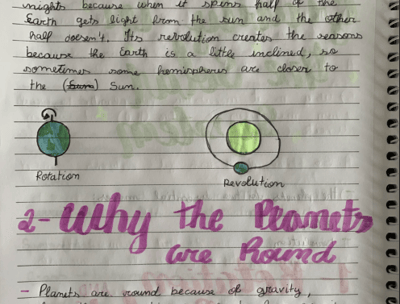 nights because when it spins half of the
Earth gets light from the sun and the other
half doesn't. Its revolution creates the seasons
because the Earth is a little inclined, so
sometimes some hemispheres are closer to
the Sun.
Rotation
Revolution
2- Why the Planets
are Round
- Planets are round because of gravity,